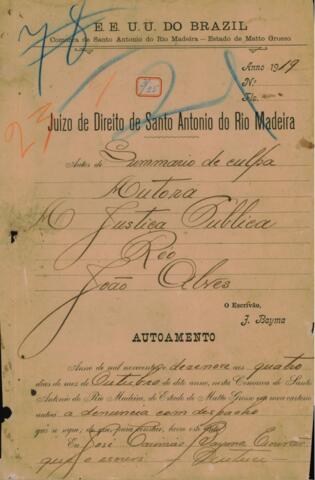 E. E. U. U. DO BRAZIL
Comarca de Santo Antonio do Rio Madeira — Estado de Matto Grosso
Anno 1919
N.
Fls.
Juizo de Direito de Santo Antonio do Rio Madeira
Autos de Summario de culpa
Autora
A Justiça Publica
Reo
João Alves
O Escrivão,
J. Bayma
AUTOAMENTO
Anno de mil novecentos e desenove aos quatro
dias do mez de Outubro do dito anno, nesta Comarca de Santo
Antonio do Rio Madeira, do Estado de Matto Grosso em meu cartorio
autuei a denuncia com despacho
que se segue; do que, para constar, lavro este
Eu José
que o escrevi